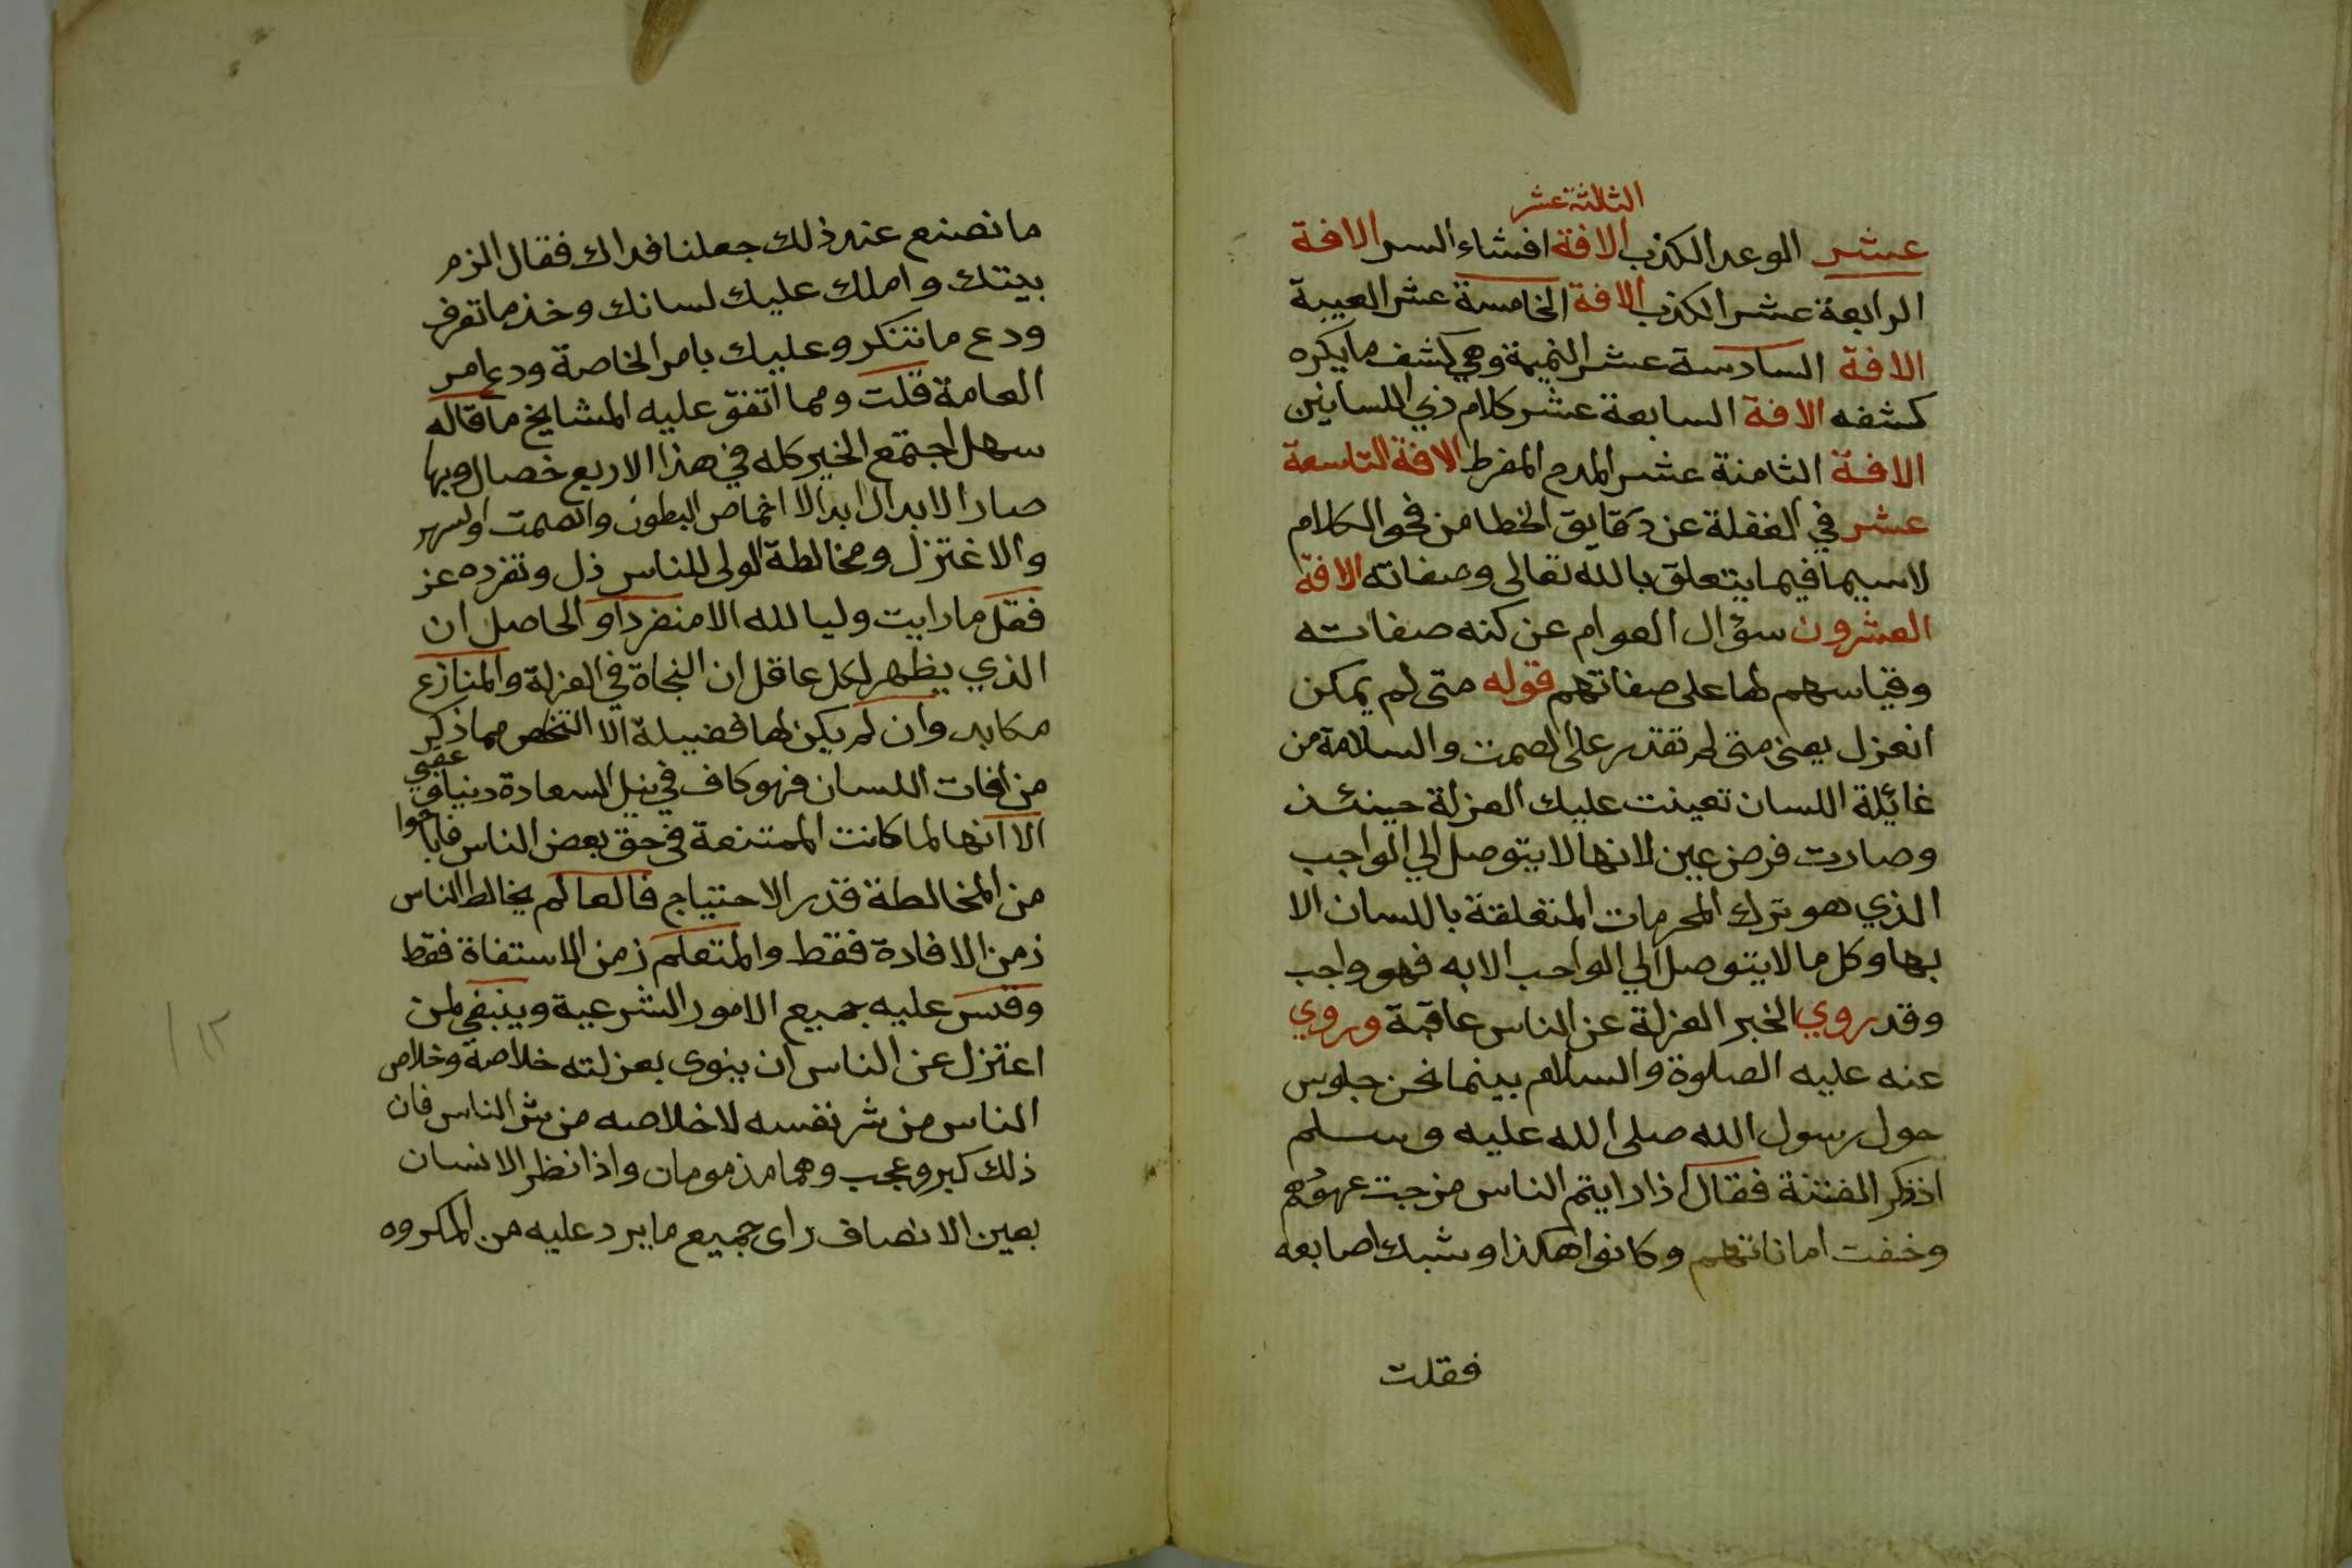 الثالثة عشر
عشر الوعد الكذب الافة افشاء السر الافة
الرابعة عشر الكذب الافة الخامسة عشر الغيبة
الافة السادسة عشر النميمة وهي كشف ما يكره
كشفه الافة السابعة عشر كلام ذي اللسانين
الافة الثامنة عشر المدح المفرط الافة التاسعة
عشر في الغفلة عن دقايق الخطا من فحو الكلام
لاسيما فيما يتعلق بالله تعالى وصفاته الافة
العشرون سؤال العوام عن كنه صفاته
وقياسهم لها على صفاتهم قوله متى لم يمكن
انعزل يعني متى لم تقدر على الصمت والسلامة من
غائلة اللسان تعينت عليك العزلة حينئذ
وصارت فرض عين لانها لا يتوصل الي الواجب
الذي هو ترك المحرمات المتعلقة باللسان الا
بها وكل ما لا يتوصل الي الواجب الا به فهو واجب
وقد روي الخبر العزلة عن الناس عاقبة وروي
عنه عليه الصلوة والسلام بينما نحن جلوس
حول رسول الله صلى الله عليه وسلم
اذ ذكر الفتنة فقال اذا رايتم الناس مزجت عهودهم
وخفت اماناتهم وكانوا هكذا وشبك اصابعه
فقلت
ما نصنع عند ذلك جعلنا فداك فقال الزم
بيتك واملك عليك لسانك وخذ ما تعرف
ودع ما تنكر وعليك بامر الخاصة ودع امر
العامة قلت ومما اتفق عليه المشايخ ما قاله
سهل اجتمع الخير كله في هذا الاربع خصال وبها
صار الابدال ابدالا اخماص البطون والصمت والسهر
والاغتزل ومخالطة الولى للناس ذل وتفرده عز
فقل ما رايت وليا لله الا منفردا والحاصل ان
الذي يظهر لكل عاقل ان النجاة في العزلة والمنازع
مكابد وان لم يكن لها فضيلة الا التخلص مما ذكر
من افات اللسان فهو كاف في نيل السعادة دنيا و
عقبي
الا انها لما كانت الممتنعة في حق بعض الناس فاباحوا
من المخالطة قدر الاحتياج فالعالم يخالط الناس
زمن الافادة فقط والمتعلم زمن الاستفاة فقط
وقس عليه جميع الامور الشرعية وينبغي لمن
اعتزل عن الناس ان ينوى بعزلته خلاصة وخلاص
الناس من شر نفسه لا خلاصه من شر الناس فان
ذلك كبر وعجب وهما مذمومان واذا نظر الانسان
بعين الانصاف راى جميع ما يرد عليه من المكروه
١٢